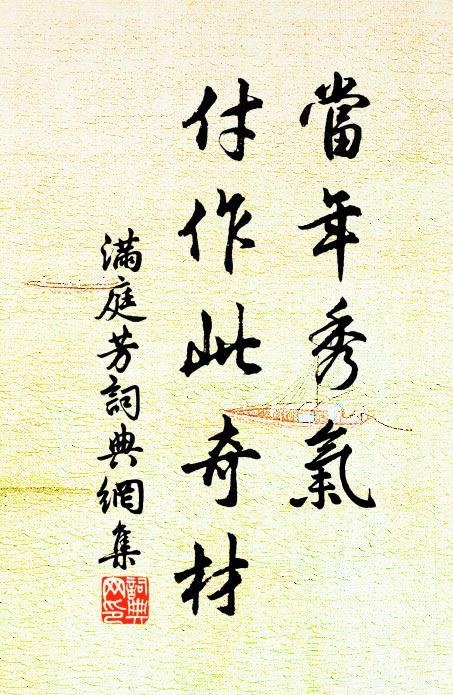 當年秀氣
付作此奇材
滿庭芳詞典網集
詞典
网印